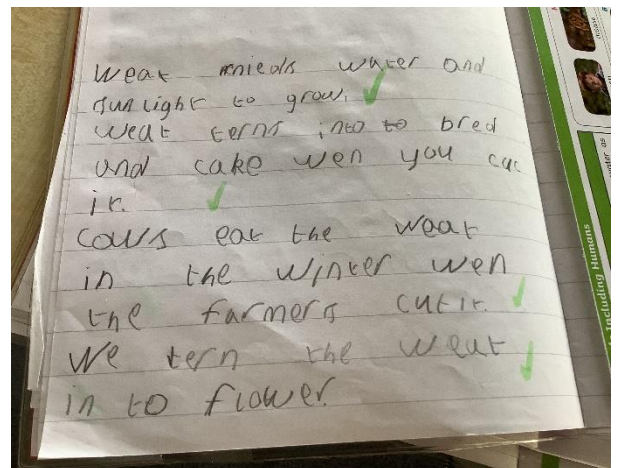 weat nieds water and
sun light to grow.
weat terns into to bred
and cake wen you cut
it.
cows eat the weat
in the winter wen
the farmers cut it.
we tern the weat
in to flower.
Including Humans